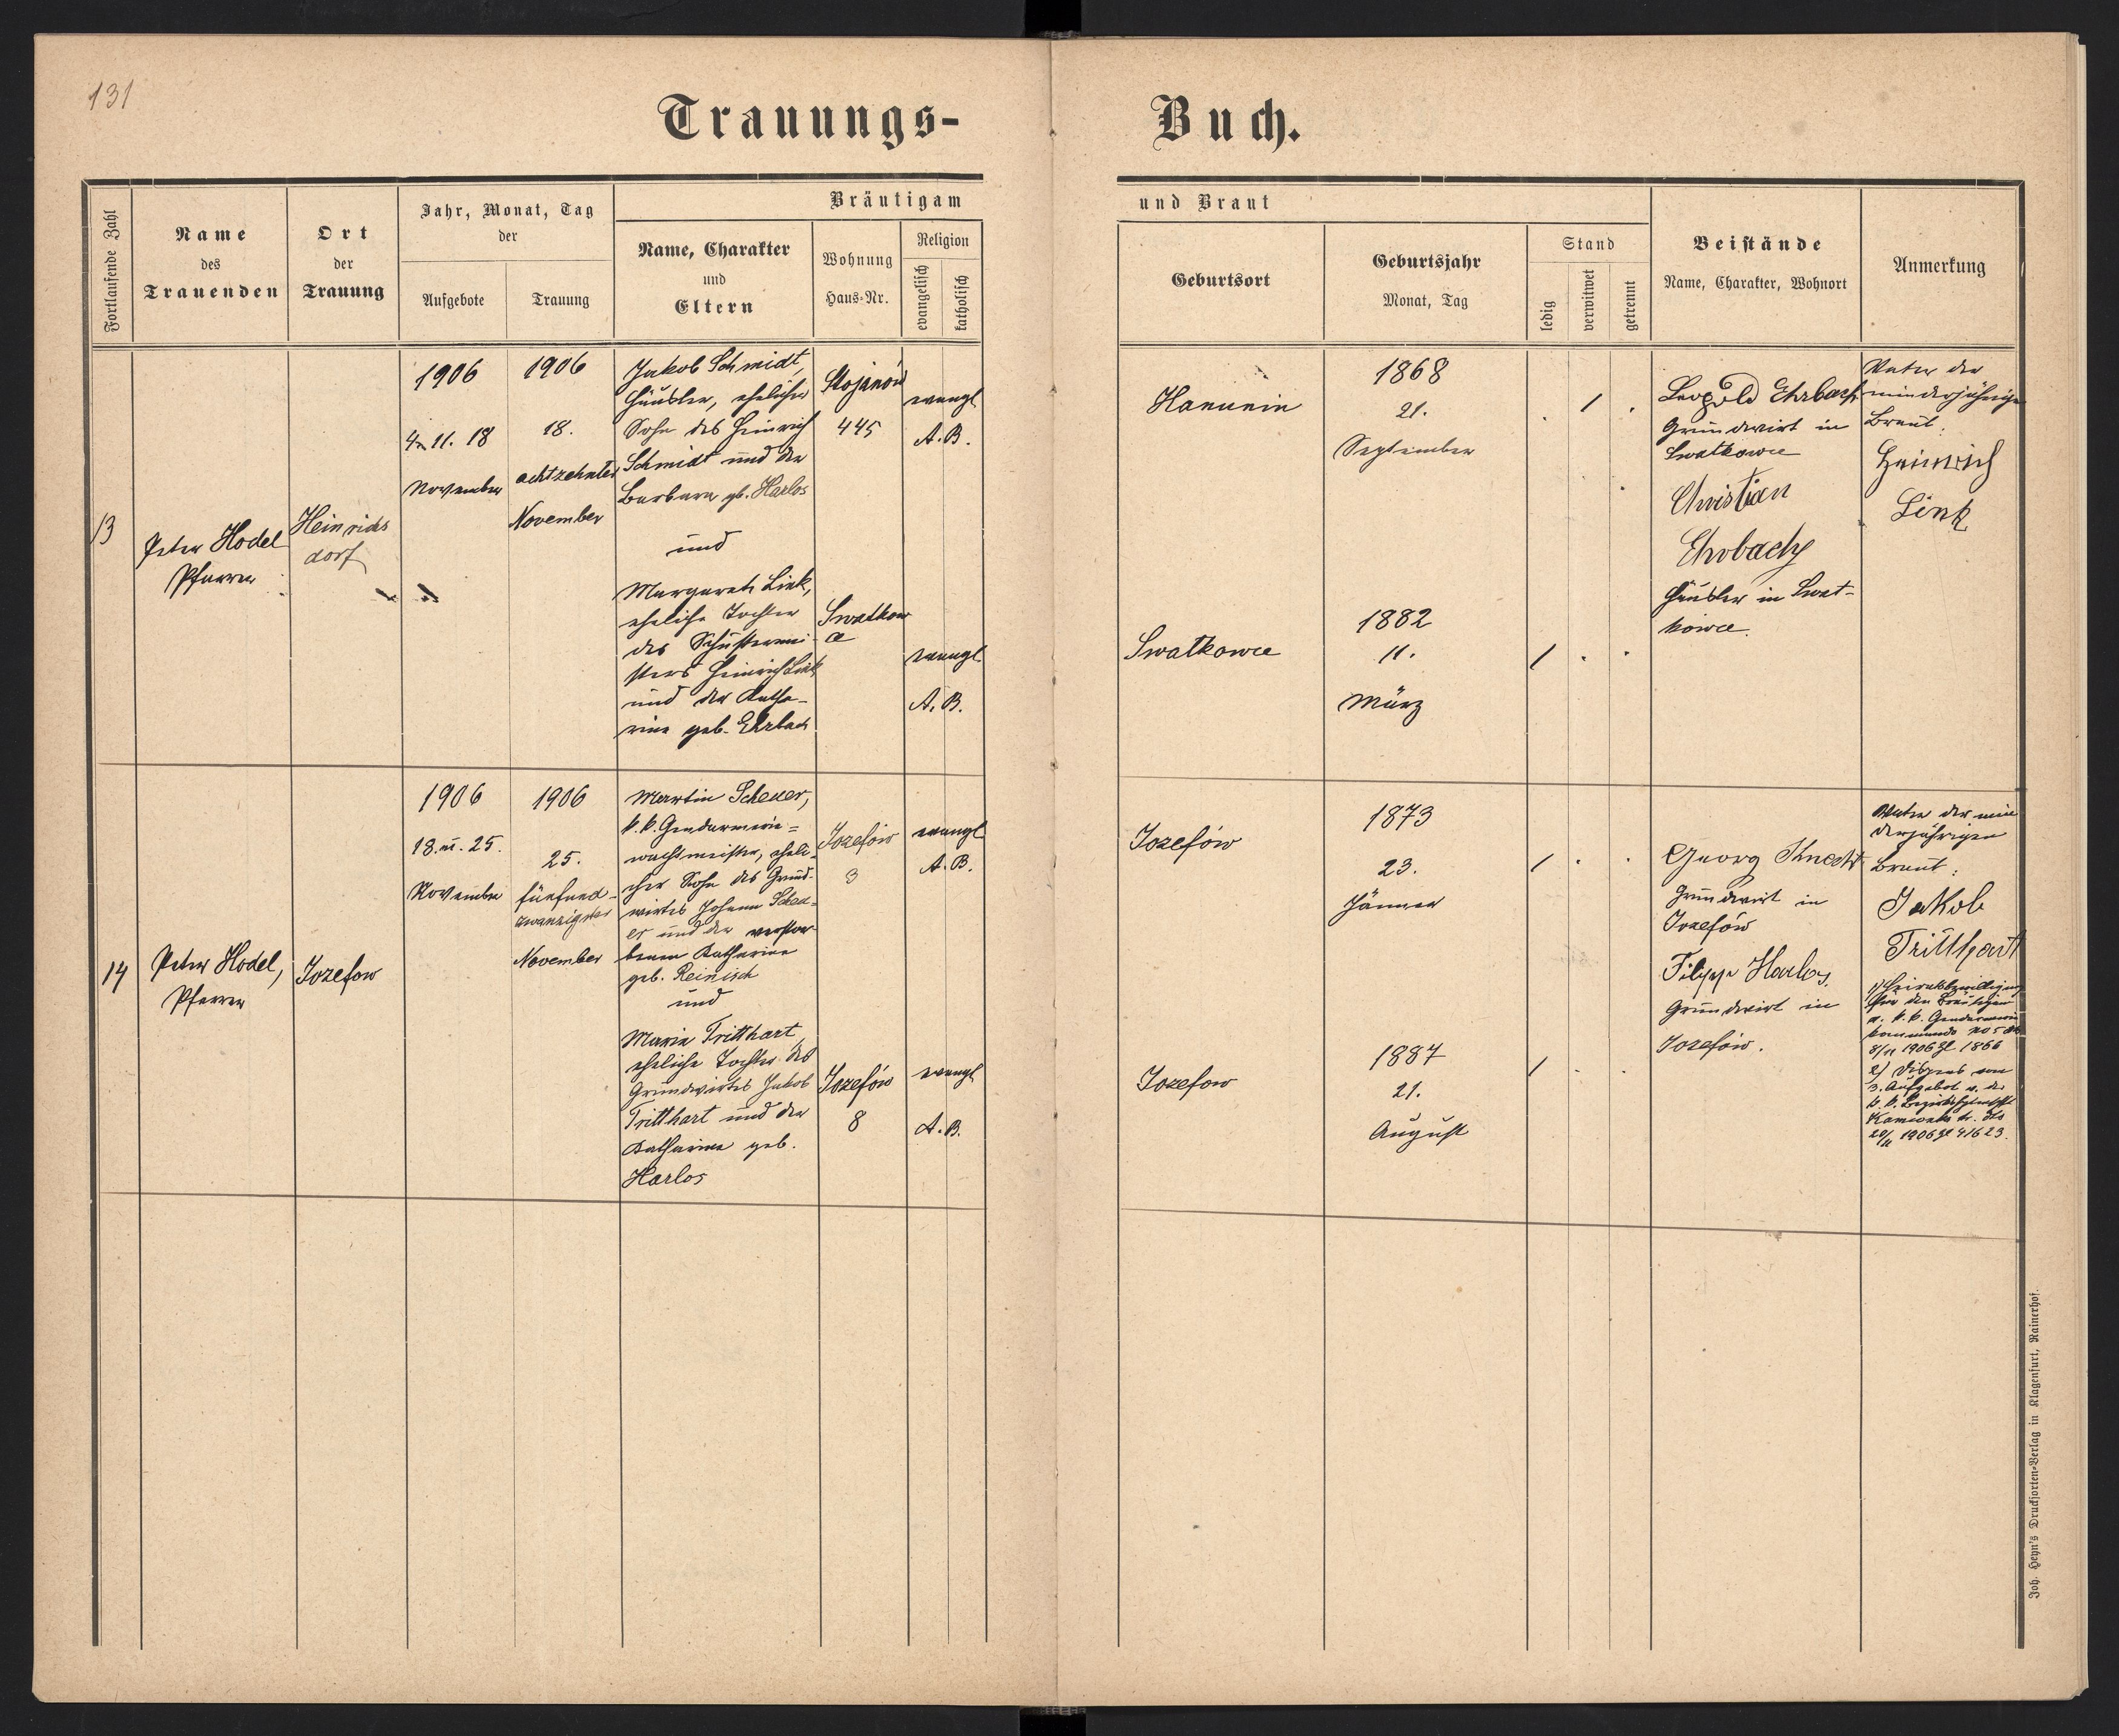 131
Trauungs-
Buch.
Fortlaufende Zahl
Name
des
Trauenden
Ort
der
Trauung
Jahr, Monat, Tag
der
Aufgebote
Trauung
Bräutigam
Name, Charakter
und
Eltern
Wohnung
Haus-Nr.
Religion
evangelisch
katholisch
und Braut
Geburtsort
Geburtsjahr
Monat, Tag
Stand
ledig
verwitwet
getrennt
Beistände
Name, Charakter, Wohnort
Anmerkung
13
Peter Hodel
Pfarrer
Heinrichs
dorf
1906
4. 11. 18
November
1906
18.
achtzehnter
November
Jakob Schmidt,
Häusler, ehelicher
Sohn des Heinrich
Schmidt und der
Barbara gb. Harlos
und
Margareta Link,
eheliche Tochter
des Schustermei-
sters Heinrich Link
und der Katha-
rina geb. Ehrbach
Stojanów
445
Swatkow
ce
evangl
A. B.
evangl.
A. B.
Hanunin
1868
21.
September
Swatkowce
1882
11.
März
Leopold Ehrbach
Grundwirt in
Swatkowce
Christian
Ehrbach
Häusler in Swat-
kowce.
Vater der
minderjährigen
Braut:
Heinrich
Link
14
Peter Hodel,
Pfarrer
Jozefow
1906
18. u. 25.
November
1906
25.
fünfund-
zwanzigster
November
Martin Scheuer,
k. k. Gendarmerie=
wachtmeister, eheli-
cher Sohn des Grund-
wirtes Johann Scheu-
er und der verstor-
benen Katharina
geb. Reinisch
und
Maria Tritthart
eheliche Tochter des
Grundwirtes Jakob
Tritthart und der
Katharina geb.
Harlos
Jozefów
3
Jozefów
8
evangl
A. B.
evangl
A. B.
Jozefów
1873
23.
Jänner
Jozefow
1887
21.
August
Georg Knecht
Grundwirt in
Jozefów
Filipp Harlos,
Grundwirt in
Jozefów.
Vater der min
derjährigen
Braut:
Jakob
Tritthart
1) Heiratsbewilligung
für den Bräutigam
v. k. k. Gendarmerie
kommando No 5
8/11 1906 Zl 1866
2) Dispens vom
3. Aufgebot v. der
k. k. Bezirkshptmschft
Kamionka str. dto
20/11 1906 Zl 41623.
Joh. Heyn's Drucksorten-Verlag in Klagenfurt, Rainerhof.